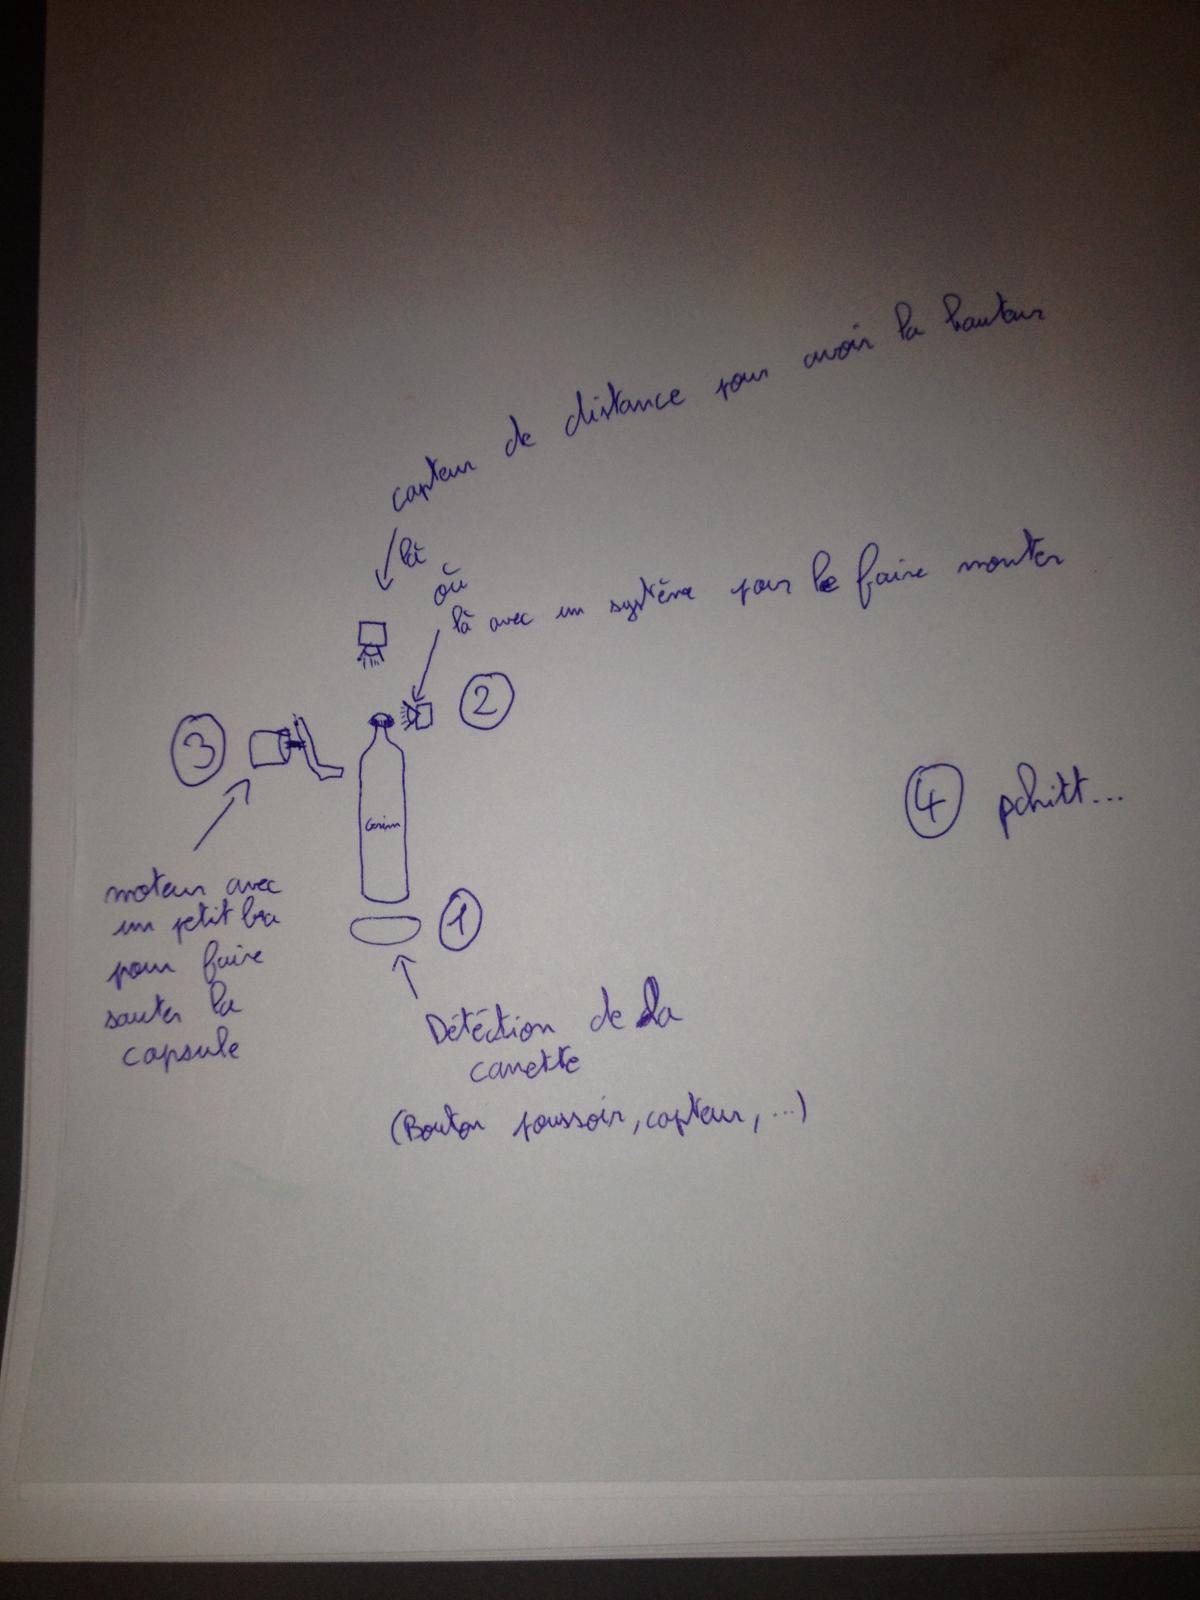 capteur de distance pour avoir la hauteur
là
où
là avec un système pour le faire monter
2
3
4 pchitt...
moteur avec
un petit bra
pour faire
sauter la
capsule
1
Détéction de la
canette
(Bouton poussoir, capteur, ...)